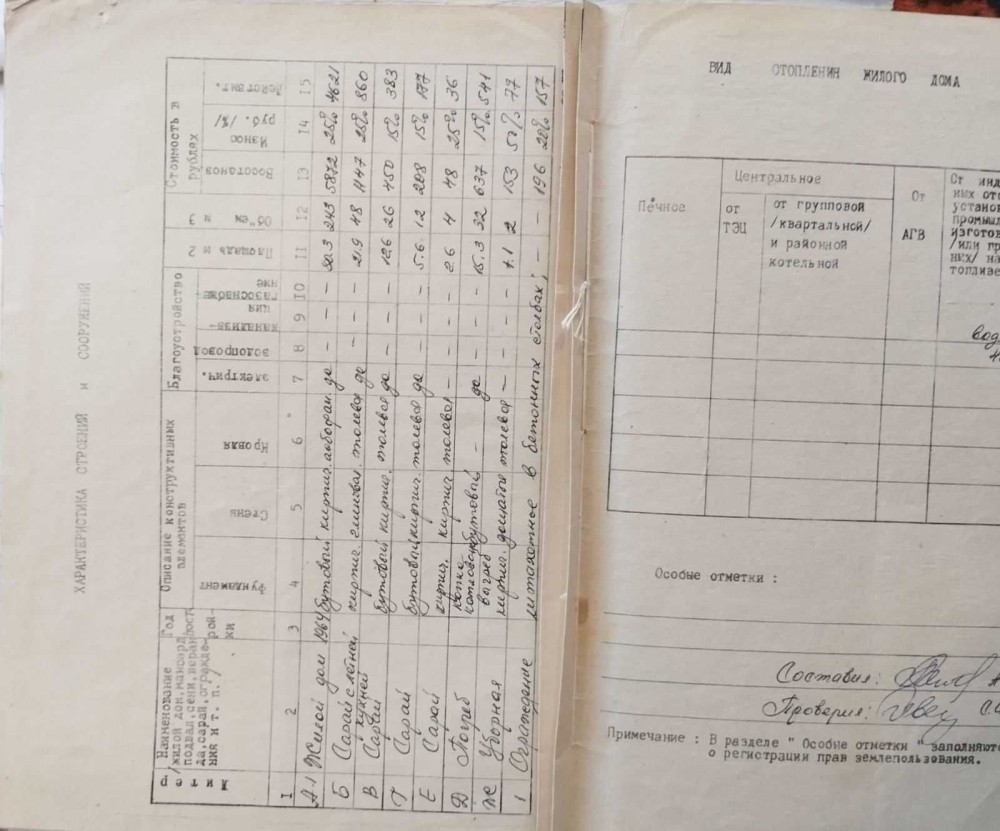 ХАРАКТЕРИСТИКА СТРОЕНИЙ и СООРУЖЕНИЙ
Литер
Наименование
/жилой дом, мансард
подвал, сени, веран
да, сарай, огражде-
ния и т. п./
Год
пост
рой-
ки
Описание конструктивных
элементов
Фундамент
Стены
Кровля
Благоустройство
электрич.
водопровод
канализа-
ция
газоснабже-
ние
Площадь м 2
Об"ем м 3
Стоимость в
рублях
Восстанов
Износ
руб. /%/
Действит.
1 2 3 4 5 6 7 8 9 10 11 12 13 14 15
А-1 Жилой дом 1964 бутовый кирпич. да – – – 243 5872 25% 4621
Б Сарай с летней кухней кирпич. толевая да – – – 21.9 48 1147 25% 860
В Сарай бутовый кирпич. толевая да – – – 12.6 26 450 15% 383
Г Сарай бутовый кирпич. толевая да – – – 5.6 12 208 15% 177
Е Сарай кирпич. кирпич толевая – – – – 2.6 4 48 25% 36
Д Погреб бутовый – да – – – 15.3 32 637 15% 541
Ж Уборная выгреб кирпич. дощатое толевая – – – – 1.1 2 153 50% 77
1 Ограждение штахетное в бетонных столбах; – – 196 20% 157
ВИД ОТОПЛЕНИЯ ЖИЛОГО ДОМА
Печное
Центральное
от
ТЭЦ
от групповой
/квартальной/
и районной
котельной
От
АГВ
От инд
ных ото
установ
промыш
изготов
/или пр
них/ на
топливе
Особые отметки :
Составил:
Проверил:
Примечание : В разделе " Особые отметки " заполняютс
о регистрации прав землепользования.